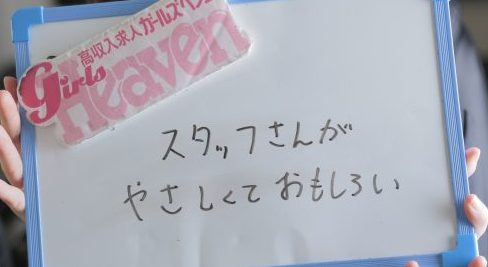 高収入求人ガールズヘブン
girls
heaven
スタッフさんが
やさしくておもしろい